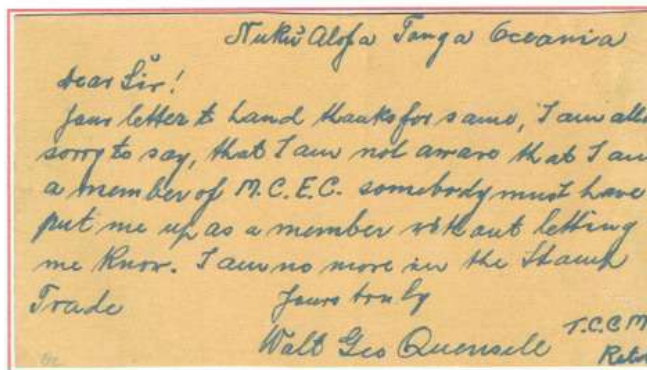 Nuku Alofa Tonga Oceania
Dear Sir!
Your letter to hand thanks for same, I am
sorry to say, that I am not aware that I am
a member of M.C.E.C. somebody must have
put me up as a member without letting
me know. I am no more in the Stamp
Trade
Yours truly
Walt Geo Quensell
T.C.C.M